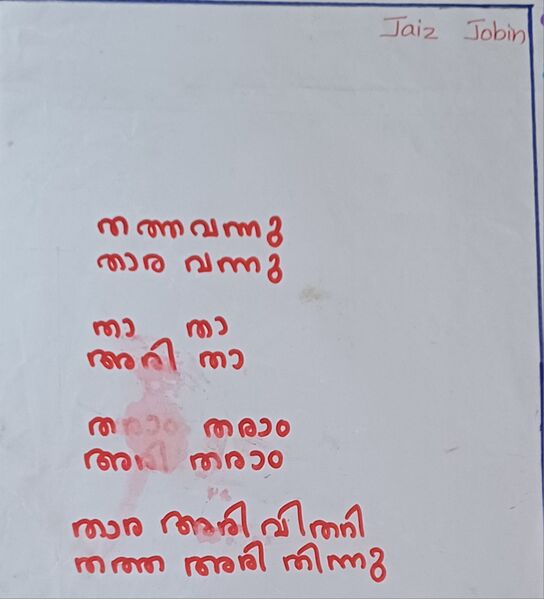 Jaiz Jobin
തത്തവന്നു
താര വന്നു
താ താ
അരി താ
തരാം തരാം
അരി തരാം
താര അരി വിതറി
തത്ത അരി തിന്നു